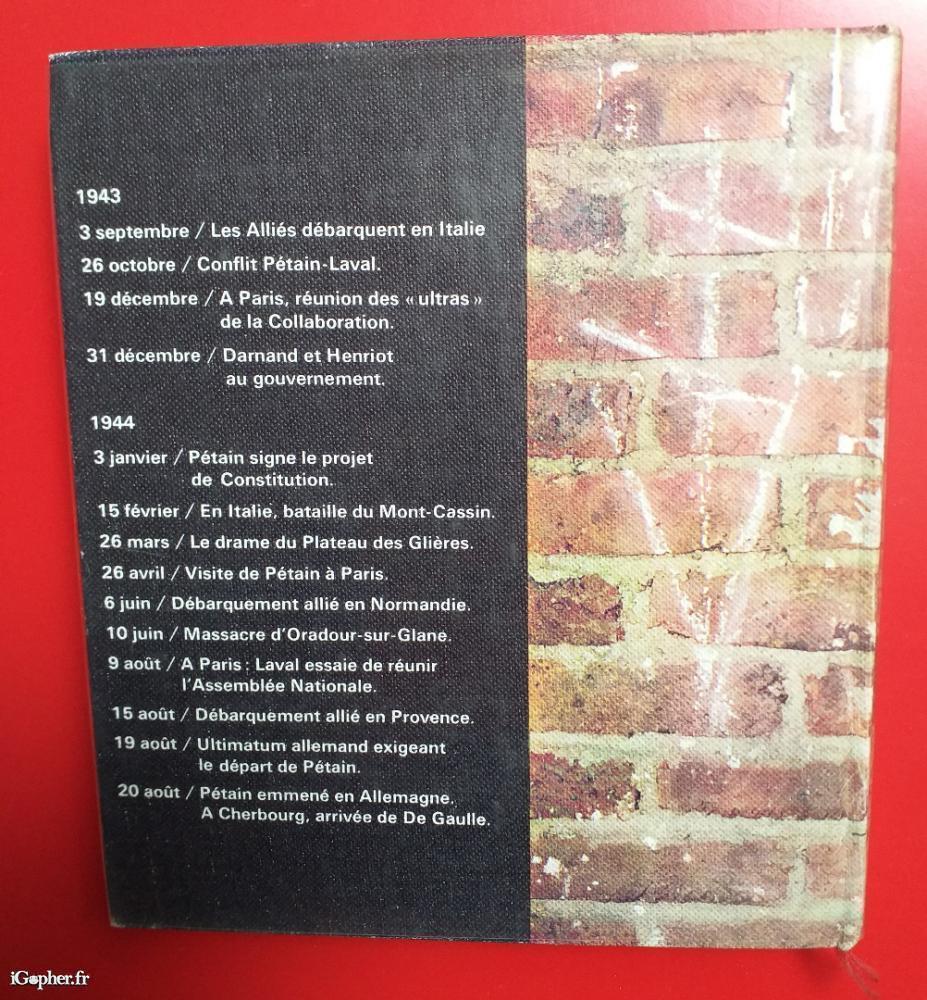 1943
3 septembre / Les Alliés débarquent en Italie
26 octobre / Conflit Pétain-Laval.
19 décembre / A Paris, réunion des « ultras »
de la Collaboration.
31 décembre / Darnand et Henriot
au gouvernement.
1944
3 janvier / Pétain signe le projet
de Constitution.
15 février / En Italie, bataille du Mont-Cassin.
26 mars / Le drame du Plateau des Glières.
26 avril / Visite de Pétain à Paris.
6 juin / Débarquement allié en Normandie.
10 juin / Massacre d'Oradour-sur-Glane.
9 août / A Paris : Laval essaie de réunir
l'Assemblée Nationale.
15 août / Débarquement allié en Provence.
19 août / Ultimatum allemand exigeant
le départ de Pétain.
20 août / Pétain emmené en Allemagne.
A Cherbourg, arrivée de De Gaulle.
iGopher.fr